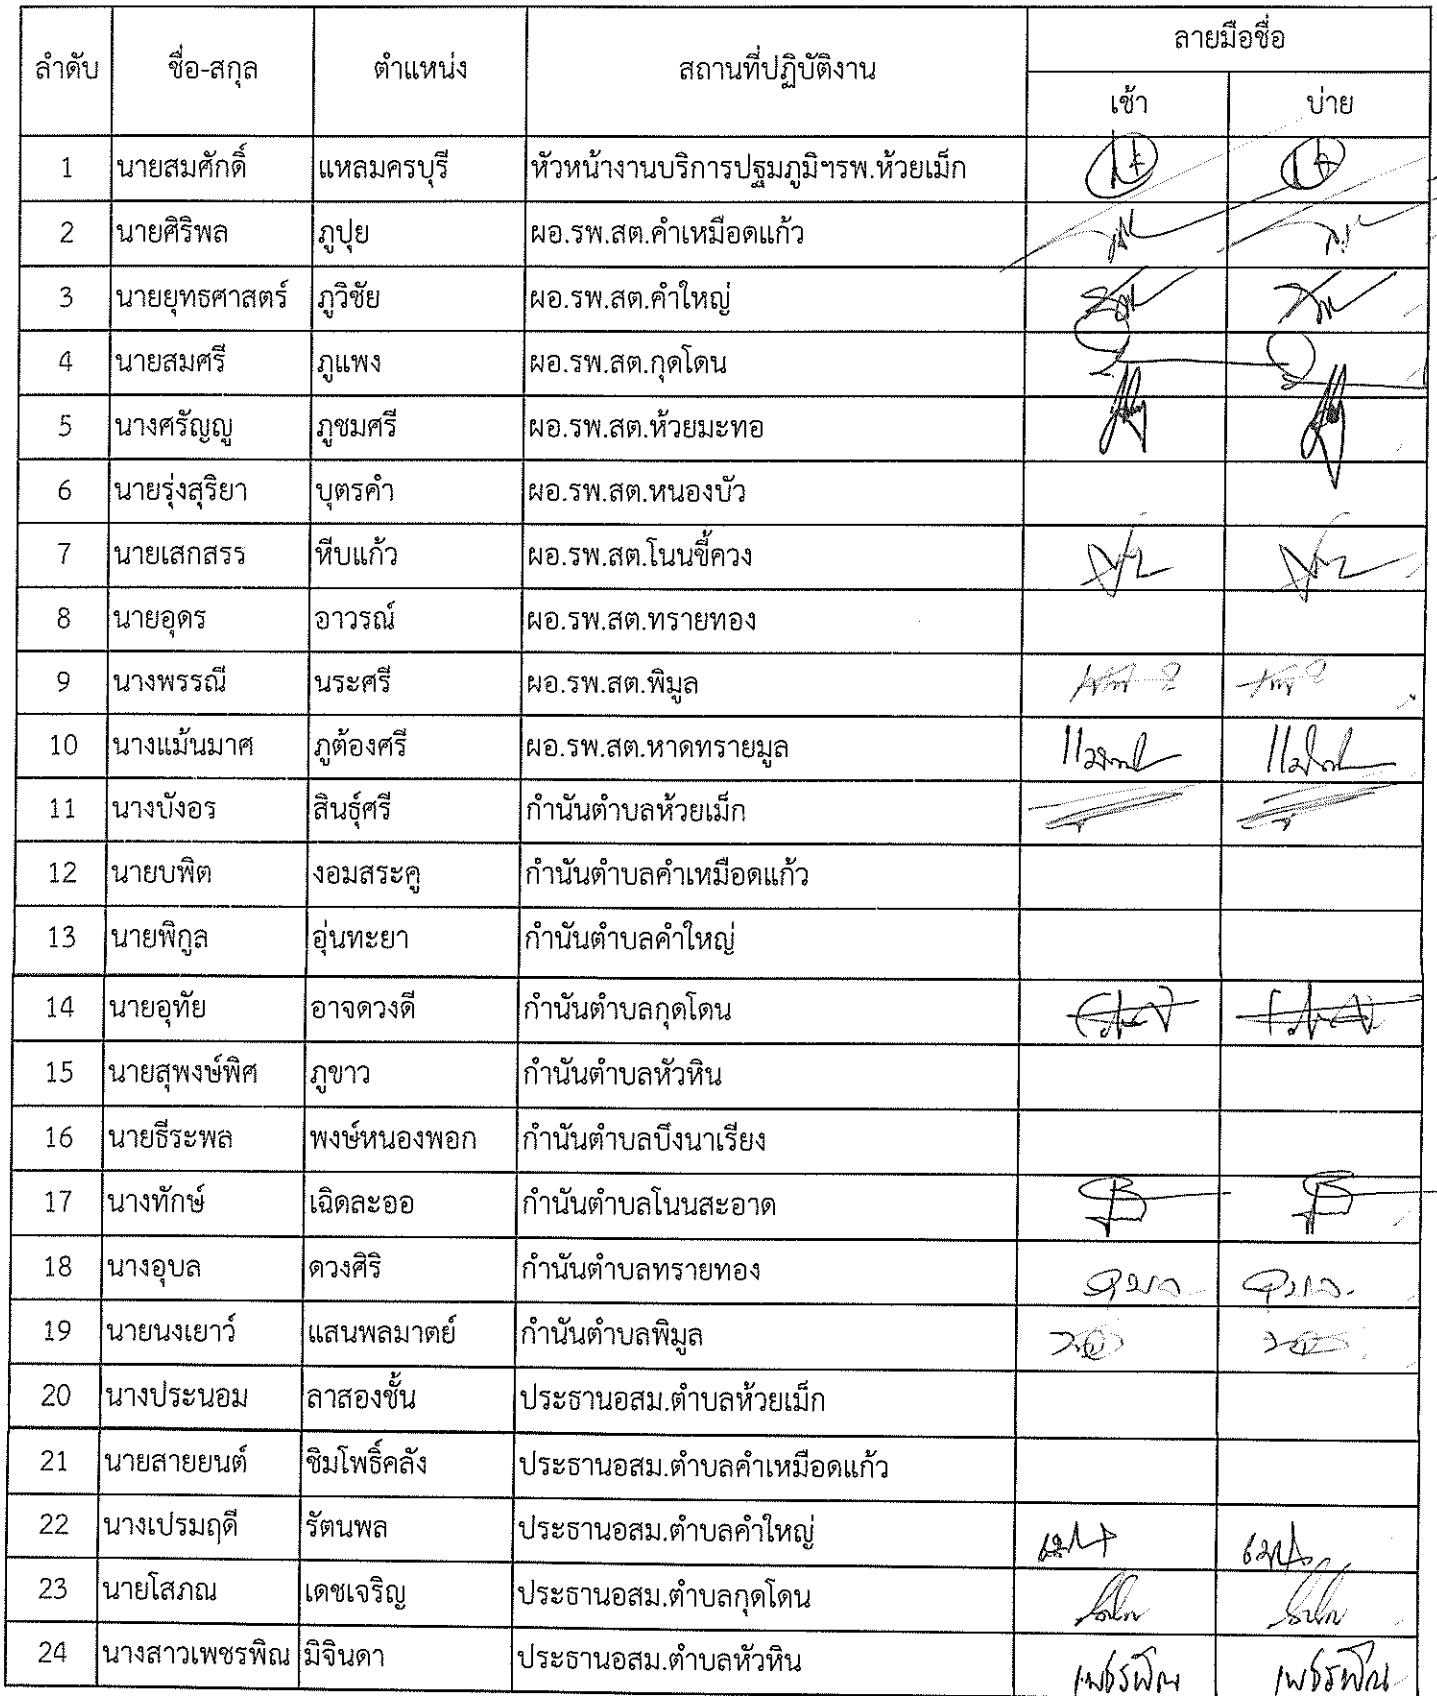 ลำดับ ชื่อ-สกุล ตำแหน่ง สถานที่ปฏิบัติงาน ลายมือชื่อ
เช้า บ่าย
1 นายสมศักดิ์ แหลมครบุรี หัวหน้างานบริการปฐมภูมิฯรพ.ห้วยเม็ก
2 นายศิริพล ภูปุย ผอ.รพ.สต.คำเหมือดแก้ว
3 นายยุทธศาสตร์ ภูวิชัย ผอ.รพ.สต.คำใหญ่
4 นายสมศรี ภูแพง ผอ.รพ.สต.กุดโดน
5 นางศรัญญู ภูชมศรี ผอ.รพ.สต.ห้วยมะทอ
6 นายรุ่งสุริยา บุตรคำ ผอ.รพ.สต.หนองบัว
7 นายเสกสรร หีบแก้ว ผอ.รพ.สต.โนนขี้ควง
8 นายอุดร อาวรณ์ ผอ.รพ.สต.ทรายทอง
9 นางพรรณี นระศรี ผอ.รพ.สต.พิมูล
10 นางแม้นมาศ ภูต้องศรี ผอ.รพ.สต.หาดทรายมูล
11 นางบังอร สินธุ์ศรี กำนันตำบลห้วยเม็ก
12 นายบพิต งอมสระคู กำนันตำบลคำเหมือดแก้ว
13 นายพิกูล อุ่นทะยา กำนันตำบลคำใหญ่
14 นายอุทัย อาจดวงดี กำนันตำบลกุดโดน
15 นายสุพงษ์พิศ ภูขาว กำนันตำบลหัวหิน
16 นายธีระพล พงษ์หนองพอก กำนันตำบลบึงนาเรียง
17 นางทักษ์ เฉิดละออ กำนันตำบลโนนสะอาด
18 นางอุบล ดวงศิริ กำนันตำบลทรายทอง
19 นายนงเยาว์ แสนพลมาตย์ กำนันตำบลพิมูล
20 นางประนอม ลาสองชั้น ประธานอสม.ตำบลห้วยเม็ก
21 นายสายยนต์ ชิมโพธิ์คลัง ประธานอสม.ตำบลคำเหมือดแก้ว
22 นางเปรมฤดี รัตนพล ประธานอสม.ตำบลคำใหญ่
23 นายโสภณ เดชเจริญ ประธานอสม.ตำบลกุดโดน
24 นางสาวเพชรพิณ มิจินดา ประธานอสม.ตำบลหัวหิน เพชรพิณ เพชรพิณ